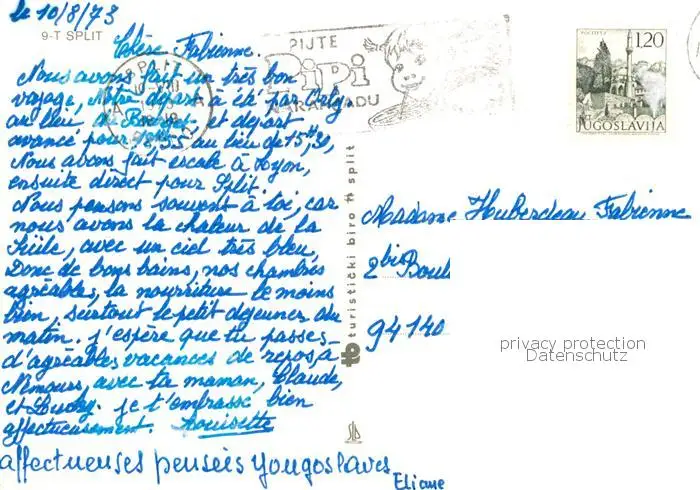 le 10/8/73
9-T SPLIT
Chère Fabienne.
Nous avons fait un très bon
voyage, Notre départ a été par Orly
au lieu du Bourget et départ
avancé pour 12H,55 au lieu de 15H,30,
Nous avons fait escale à Lyon,
ensuite direct pour Split.
Nous pensons souvent à toi, car
nous avons la chaleur de la
Sicile, avec un ciel très bleu,
Donc de bons bains, nos chambres
agréables, la nourriture le moins
bien, surtout le petit dejeuner du
matin. j'espère que tu passes
d'agréables vacances de repos, à
Nemours, avec ta maman, Claude,
et . je t'embrasse bien
affectueusement. Louisette
affectueuses pensées yougoslaves
Eliane
PIJTE
PiPi
NARANĐADU
1,20
JUGOSLAVIJA
turistički biro split
Madame Huberdeau Fabienne
2bis Boul
94140
privacy protection
Datenschutz